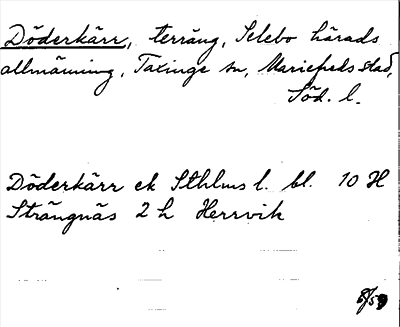 Döderkärr, terräng, Selebo härads
allmänning, Taxinge sn, Mariefreds stad,
Söd. l.
Döderkärr ek Sthlms l. bl. 10 H
Strängnäs 2 h Herrvik
8/59